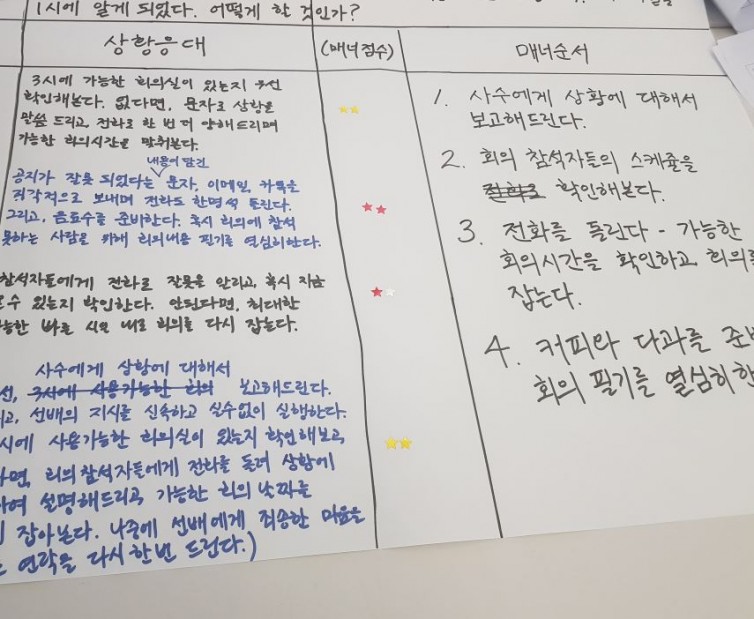 1시에 알게 되었다. 어떻게 할 것인가?
상황응대
(매너점수)
매너순서
3시에 가능한 회의실이 있는지 우선
확인해본다. 없다면, 문자로 상황을
말씀 드리고, 전화로 한 번 더 양해드리며
가능한 회의시간을 맞춰본다.
내용이 담긴
공지가 잘못 되었다는 문자, 이메일, 카톡을
즉각적으로 보내며 전화도 한명씩 돌린다.
그리고, 음료수를 준비한다. 혹시 회의에 참석
못하는 사람을 위해 회의내용 필기를 열심히한다.
참석자들에게 전화로 잘못을 알리고, 혹시 지금
수 있는지 확인한다. 안된다면, 최대한
가능한 빠른 시일 내로 회의를 다시 잡는다.
사수에게 상황에 대해서
선, 3시에 사용가능한 회의 보고해드린다.
고, 선배의 지시를 신속하고 실수없이 실행한다.
시에 사용가능한 회의실이 있는지 확인해보고,
다면, 회의참석자들에게 전화를 돌려 상황에
하여 설명해드리고, 가능한 회의 날짜를
잡아본다. 나중에 선배에게 죄송한 마음을
연락을 다시한번 드린다.)
1. 사수에게 상황에 대해서
보고해드린다.
2. 회의 참석자들의 스케쥴을
전화로 확인해본다.
3. 전화를 돌린다 - 가능한
회의시간을 확인하고, 회의를
잡는다.
4. 커피와 다과를 준비
회의 필기를 열심히 한